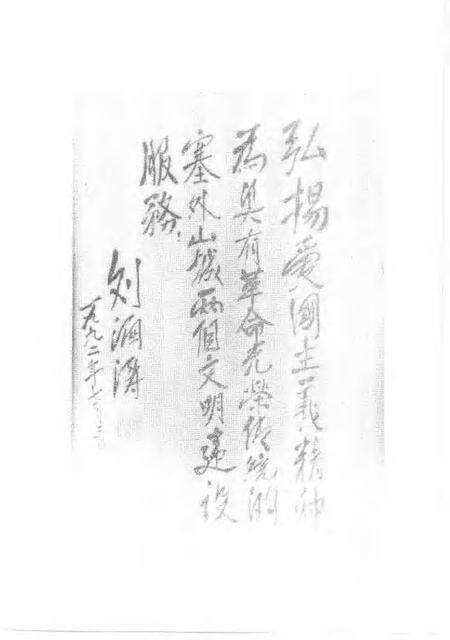 弘揚愛國主義精神
為具有革命光榮傳統的
塞外山城兩個文明建设
服務
刘
一九九二年七月